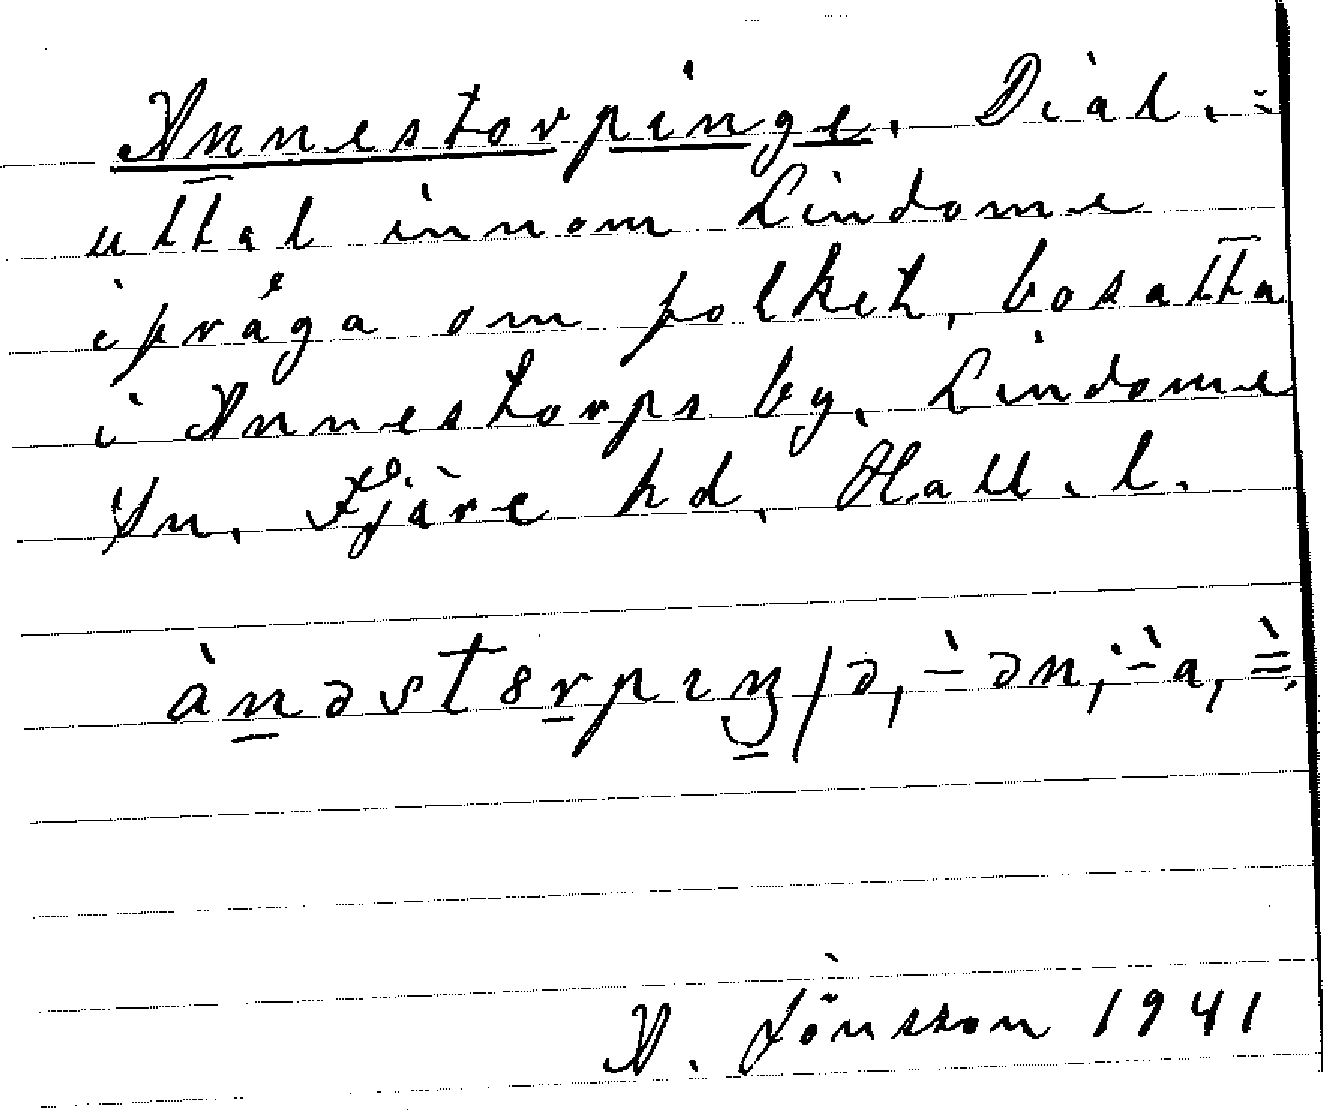 Annestorpinge. Dial.=
uttal innom Lindome
ifråga om folket, bosatta
i Annestorps by, Lindome
Sn. Fjäre hd, Hall. l.
A. Jönsson 1941